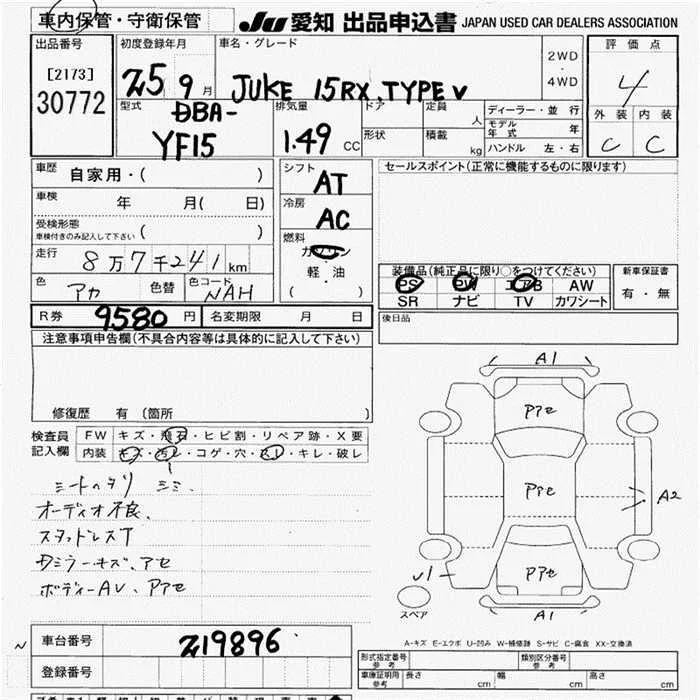 車内保管・守衛保管
JU 愛知 出品申込書 JAPAN USED CAR DEALERS ASSOCIATION
出品番号
[2173]
30772
初度登録年月
25 9 月
車名・グレード
JUKE 15RX TYPE V
2WD
・
4WD
評価点
4
外装 内装
C C
型式
DBA-
YF15
排気量
1.49 CC
ドア
形状
定員 人
積載 kg
ディーラー・並行
モデル年式 年
ハンドル 左・右
車歴
自家用・( )
車検 年 月( 日)
受検形態
車検付きのみ記入して下さい ( )
走行
8万7千241km
色 アカ 色替 色コード NAH
シフト
AT
冷房
AC
燃料
ガソリン
・
軽・油
( )
セールスポイント(正常に機能するものに限ります)
装備品(純正品に限り○をつけてください)
PS PW エアB AW
SR ナビ TV カワシート
新車保証書
有・無
R券 9580 円 名変期限 月 日
後日品
注意事項申告欄(不具合内容等は具体的に記入して下さい)
修復歴 有 (箇所 )
検査員
記入欄
FW キズ・飛石・ヒビ割・リペア跡・X要
内装 キズ・汚レ・コゲ・穴・スレ・キレ・破レ
シートヘタリ シミ
オーディオ不良、
スタッドレスT
ミラーキズ、アセ
ボディーAU、Pアセ
A1
Pアセ
Pアセ
A2
Pアセ
U1
A1
スペア
A-キズ E-エクボ U-凹み W-補修跡 S-サビ C-腐食 XX-交換済
車台番号 219896
登録番号
形式指定番号
参考
類別区分番号
参考
車庫証明用
参考
長さ cm 幅 cm 高さ cm